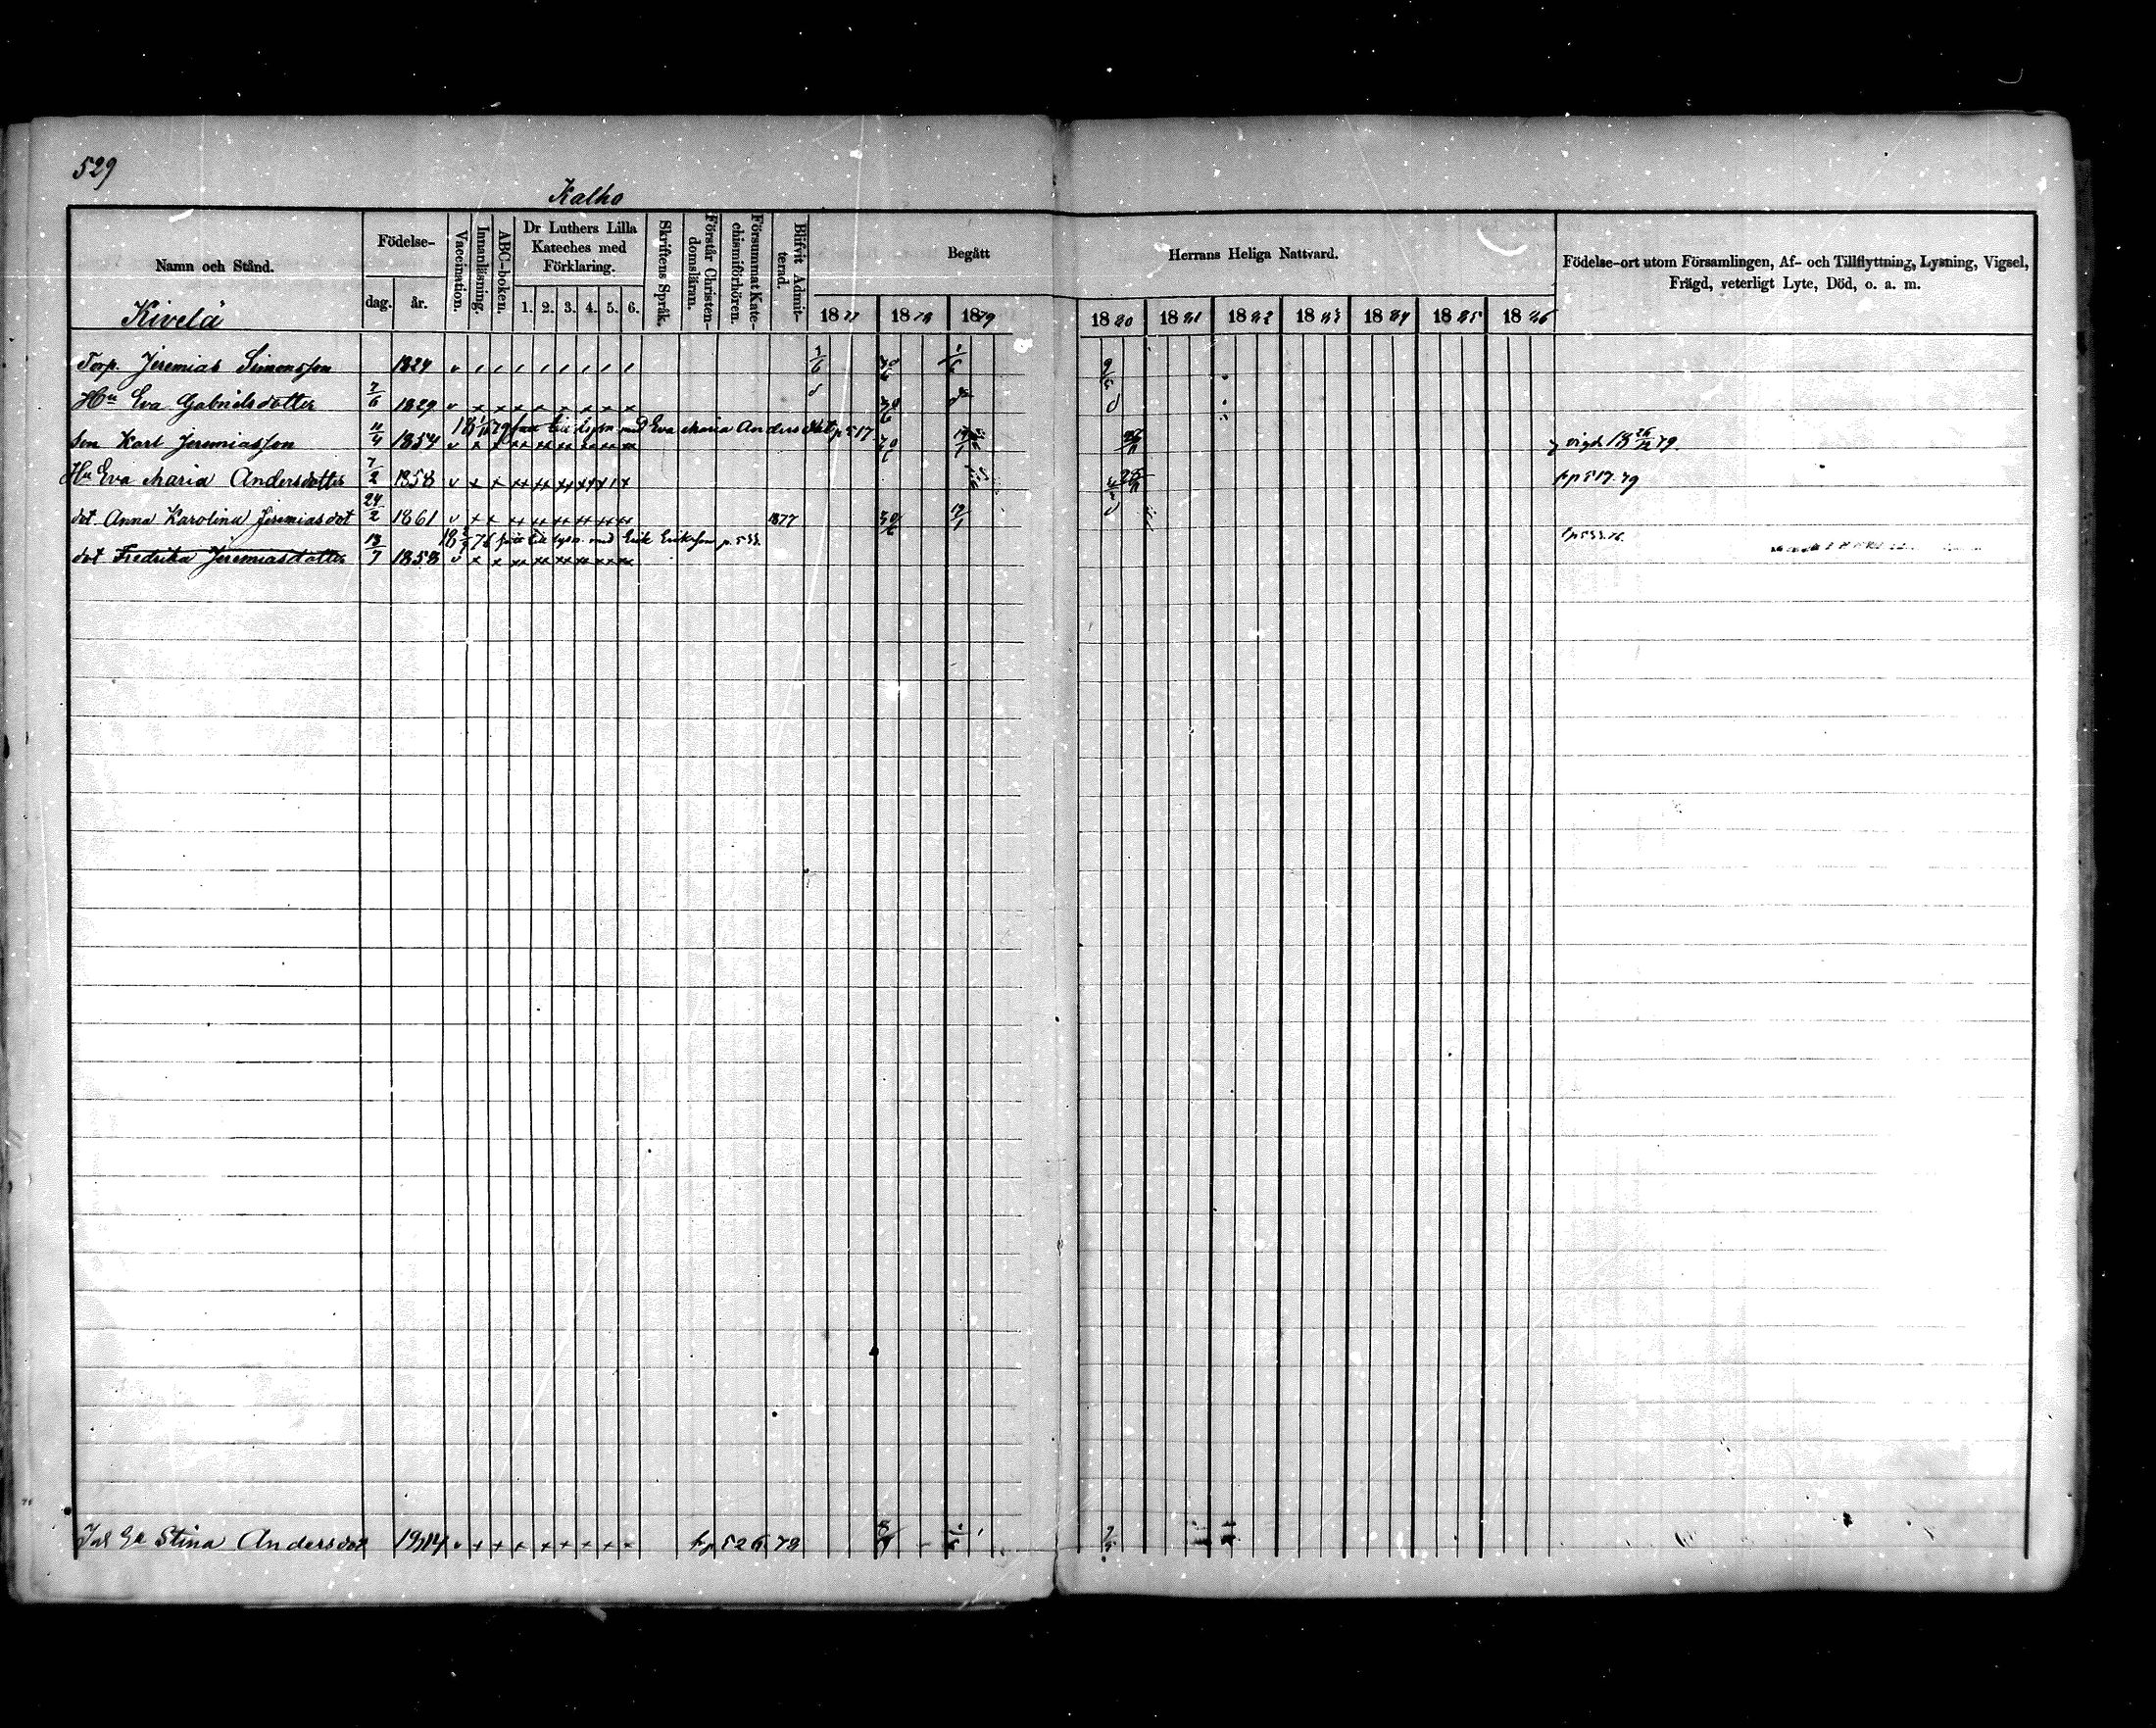 529
Kalho
Namn och Stånd.
Födelse-
dag.
år.
Vaccination.
Innanläsning.
ABC-boken.
Dr Luthers Lilla Kateches med Förklaring.
1. 2. 3. 4. 5. 6.
Skriftens Språk.
Förstår Christen-domsläran.
Försummat Kate-chismiförhören.
Blifvit Admit-terad.
Begått
Herrans Heliga Nattvard.
Födelse-ort utom Församlingen, Af- och Tillflyttning, Lysning, Vigsel,
Frägd, veterligt Lyte, Död, o. a. m.
1877 1878 1879 1880 1881 1882 1883 1884 1885 1886
Kivelä
Torp. Jeremias Simonsson 1824
Hu Eva Gabrielsdotter 7/6 1829
18 79 till med Eva Maria Anders dot p 517
Son Karl Jeremiasson 11/4 1854 vigde 18 26/12 79.
Hu Eva Maria Andersdotter 7/2 1858 fr p 517. 79
dot. Anna Karolina Jeremiasdot 24/2 1861 1877
18 76 till lysn. med Erik Eriksson p. 533.
dot Fredrika Jeremiasdotter 13/7 1858
Stina Andersdot fr p 526. 78